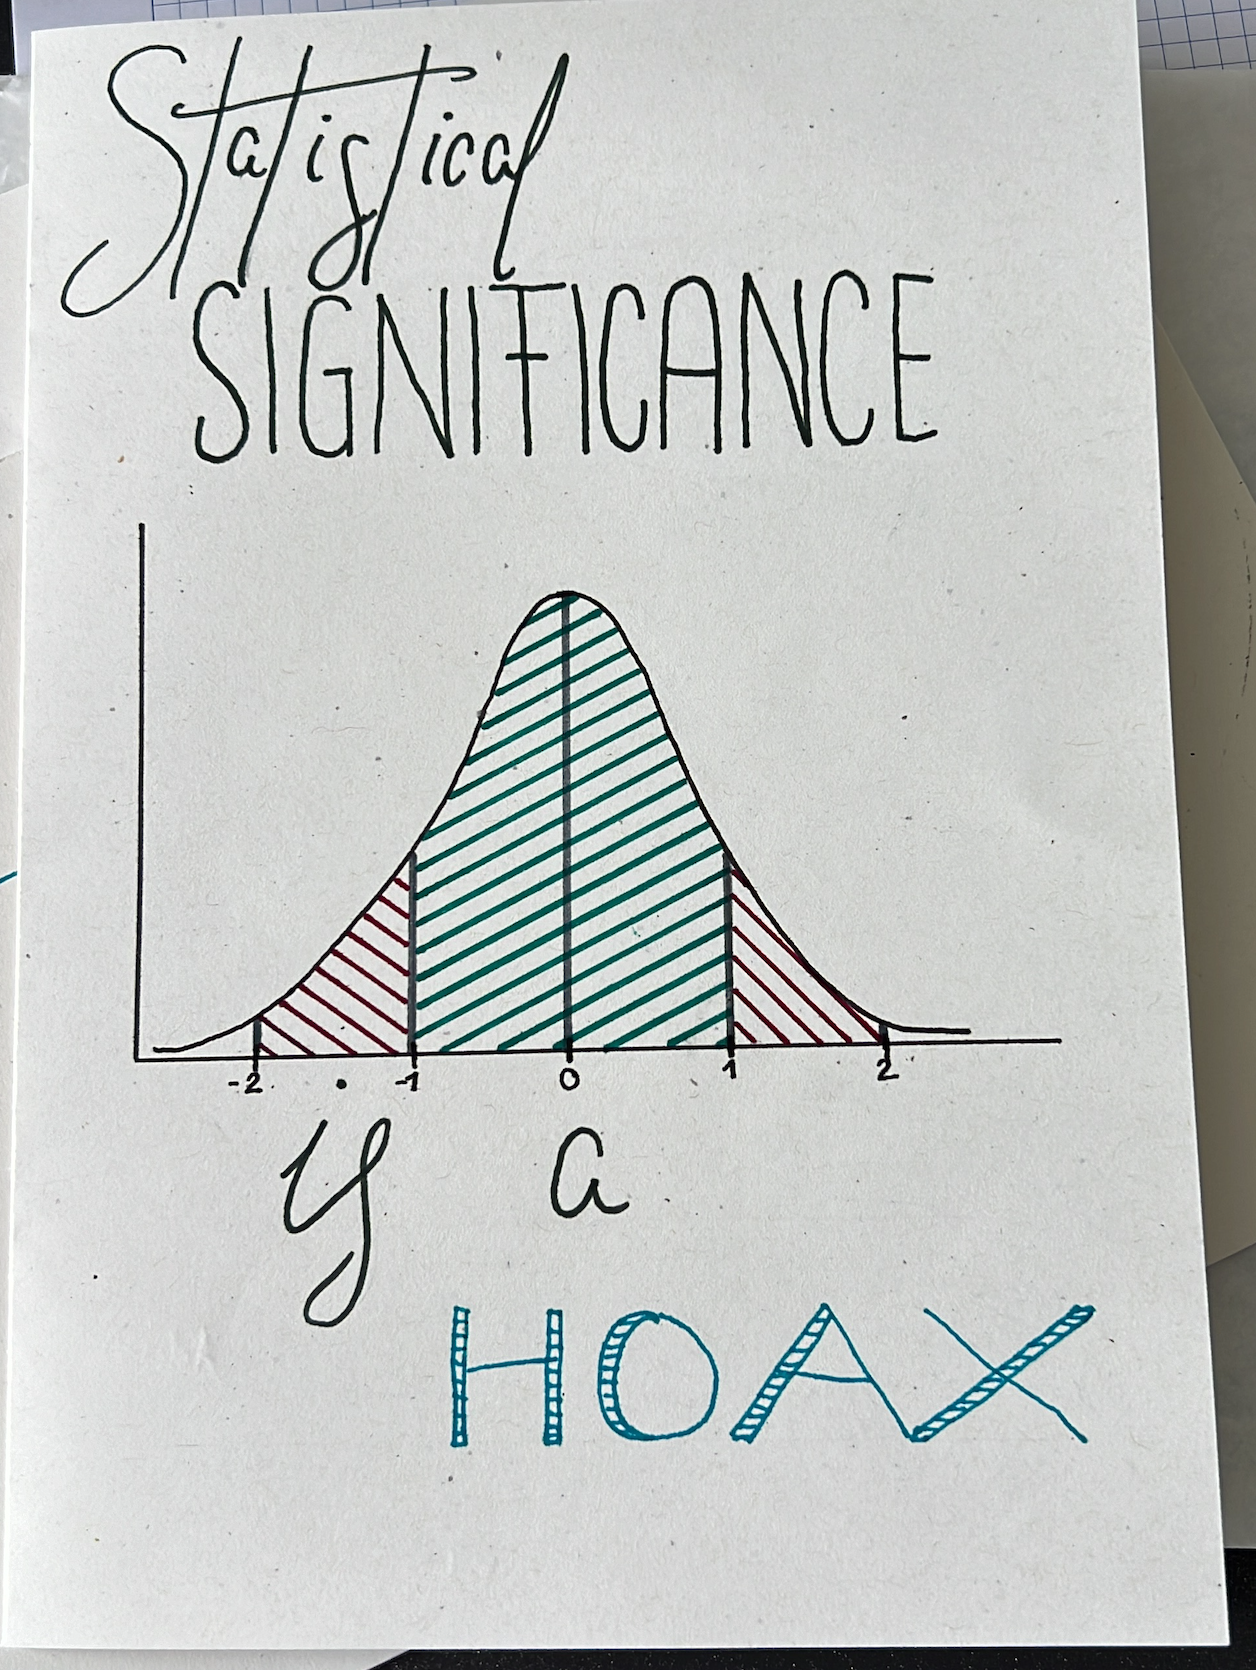 Statistical
SIGNIFICANCE
-2 -1 0 1 2
is a
HOAX